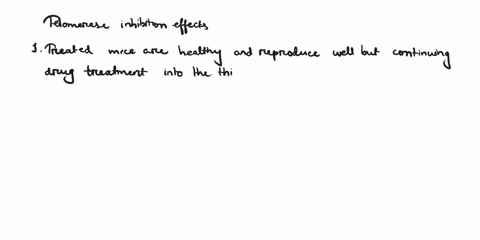 Telomerase inhibition effects
1. Treated mice are healthy and reproduce well but continuing
drug treatment into the thi